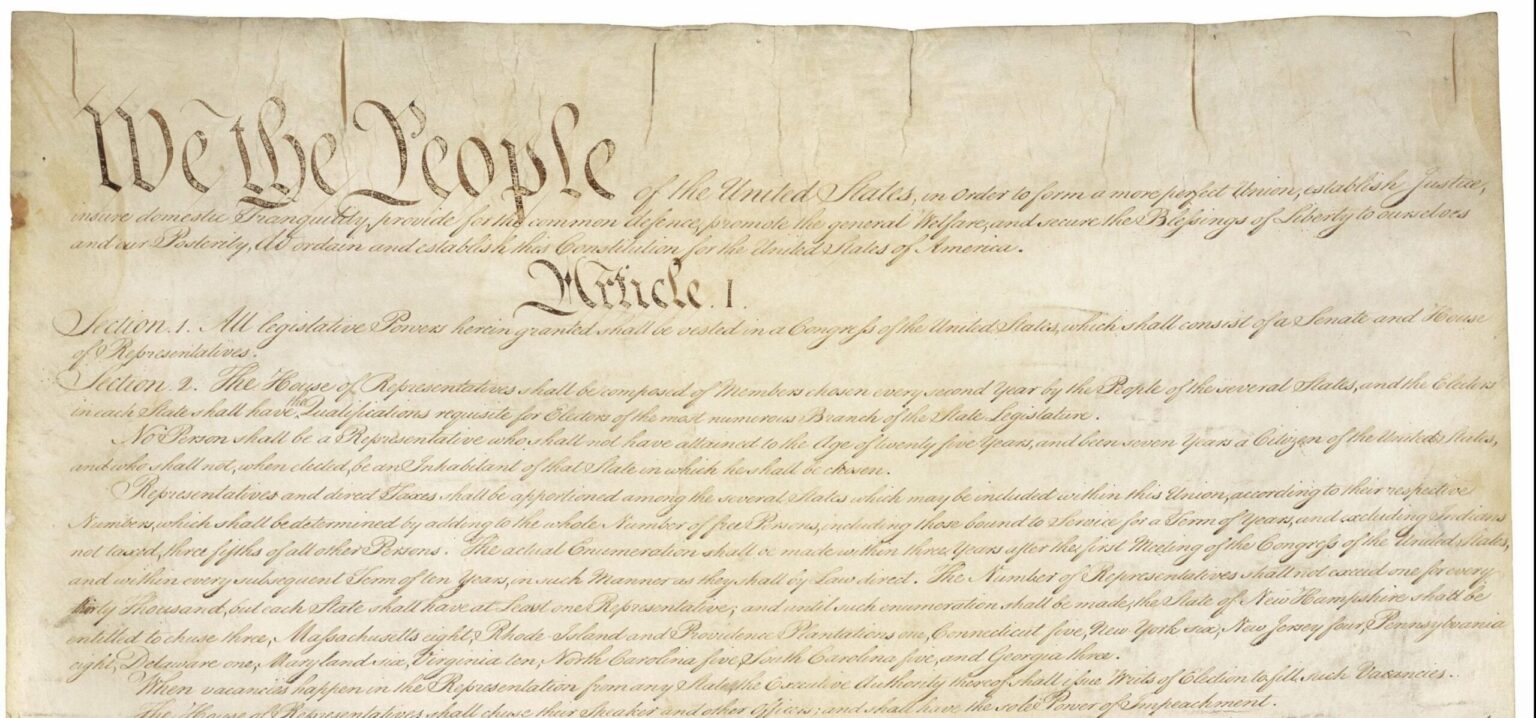 We the People of the United States, in Order to form a more perfect Union, establish Justice,
insure domestic Tranquility, provide for the common defence, promote the general Welfare, and secure the Blessings of Liberty to ourselves
and our Posterity, do ordain and establish this Constitution for the United States of America.
Article. I.
Section. 1. All legislative Powers herein granted shall be vested in a Congress of the United States, which shall consist of a Senate and House
of Representatives.
Section. 2. The House of Representatives shall be composed of Members chosen every second Year by the People of the several States, and the Electors
in each State shall have the Qualifications requisite for Electors of the most numerous Branch of the State Legislature.
No Person shall be a Representative who shall not have attained to the Age of twenty five Years, and been seven Years a Citizen of the United States,
and who shall not, when elected, be an Inhabitant of that State in which he shall be chosen.
Representatives and direct Taxes shall be apportioned among the several States which may be included within this Union, according to their respective
Numbers, which shall be determined by adding to the whole Number of free Persons, including those bound to Service for a Term of Years, and excluding Indians
not taxed, three fifths of all other Persons. The actual Enumeration shall be made within three Years after the first Meeting of the Congress of the United States,
and within every subsequent Term of ten Years, in such Manner as they shall by Law direct. The Number of Representatives shall not exceed one for every
thirty Thousand, but each State shall have at Least one Representative; and until such enumeration shall be made, the State of New Hampshire shall be
entitled to chuse three, Massachusetts eight, Rhode Island and Providence Plantations one, Connecticut five, New York six, New Jersey four, Pennsylvania
eight, Delaware one, Maryland six, Virginia ten, North Carolina five, South Carolina five, and Georgia three.
When vacancies happen in the Representation from any State, the Executive Authority thereof shall issue Writs of Election to fill such Vacancies.
The House of Representatives shall chuse their Speaker and other Officers; and shall have the sole Power of Impeachment.